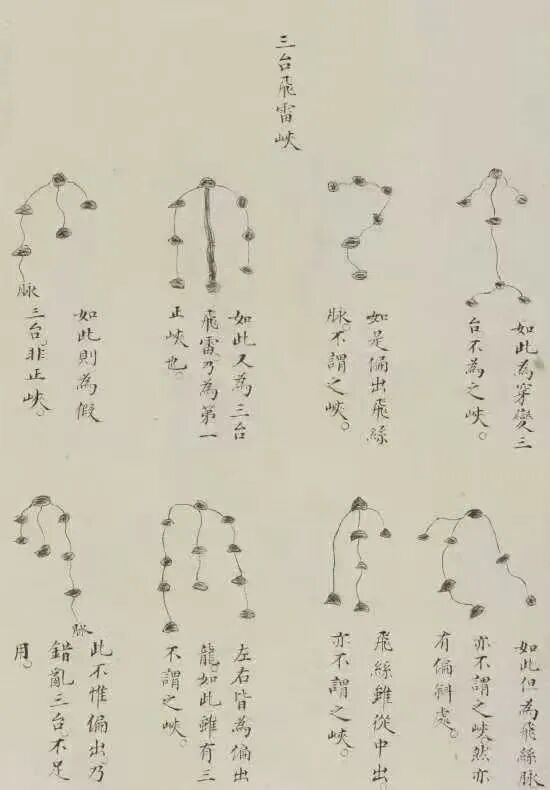 三台飛雷峽
如此為穿變三
台不為之峽。
如是偏出飛絲
脉。不謂之峽。
如此又為三台
飛雷。乃為第一
正峽也。
如此則為假
三台。非正峽。
脉
如此但為飛絲脉
亦不謂之峽。然亦
有偏斜處。
飛絲雖從中出。
亦不謂之峽。
左右皆為偏出
龍。如此雖有三
不謂之峽。
此不惟偏出。乃
錯亂三台。不足
用。
脉